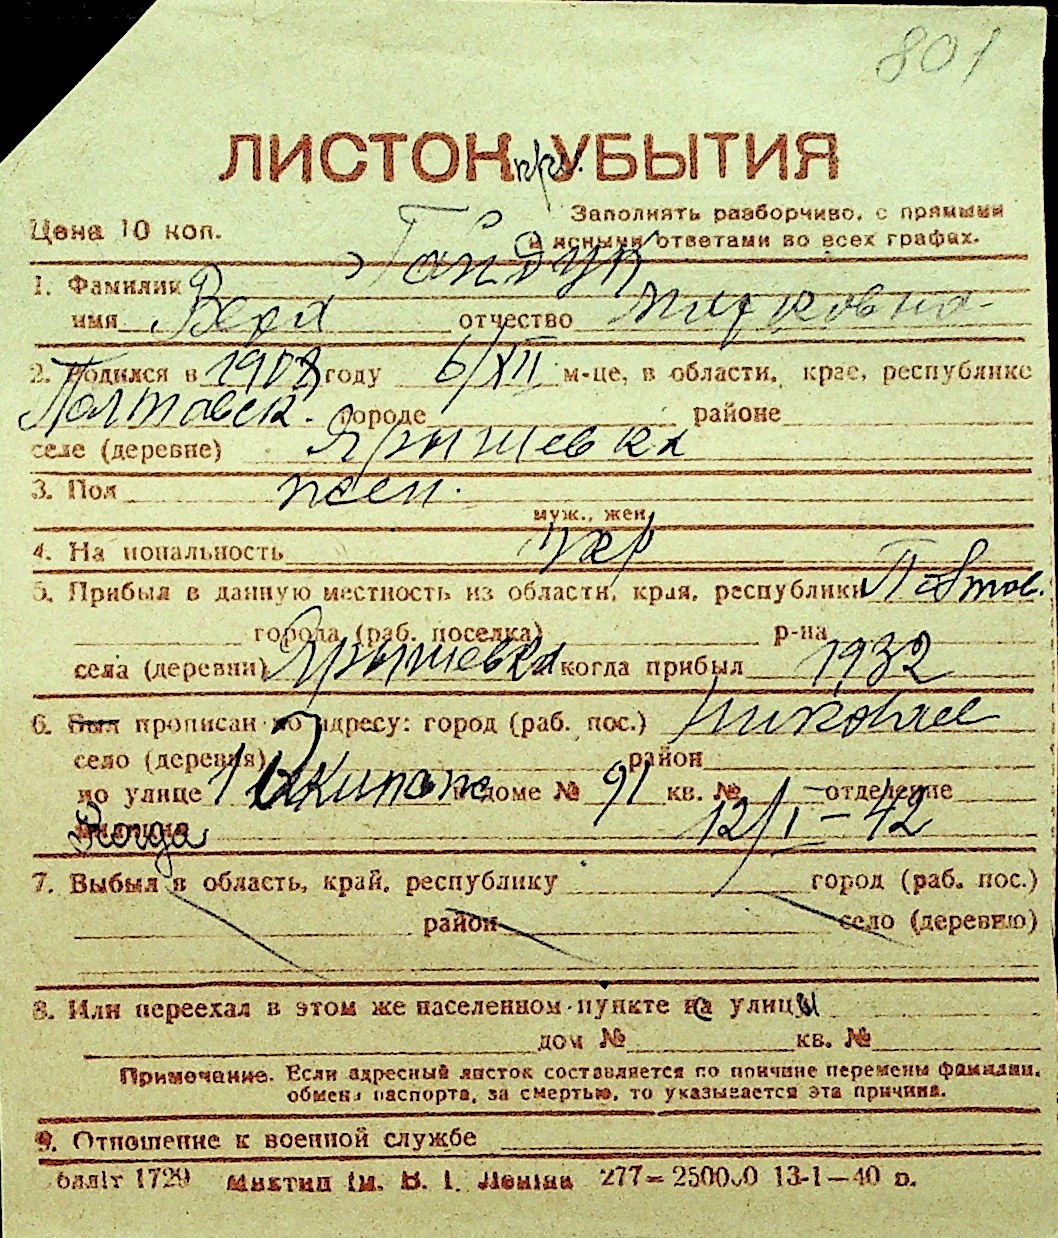 801
ЛИСТОК УБЫТИЯ
Цена 10 коп.
Заполнять разборчиво, с прямыми
и ясными ответами во всех графах.
1. Фамилия Гайдук
имя Вера отчество Марковна
2. Родился в 1908 году 6/XII м-це, в области, крае, республике
Полтавск. городе районе
селе (деревне) Ярышевка
3. Пол жен.
муж., жен.
4. Национальность укр
5. Прибыл в данную местность из области, края, республики Полтав.
города (раб. поселка) р-на
села (деревни) Ярышевка когда прибыл 1932
6. Был прописан по адресу: город (раб. пос.) Николаев
село (деревня) район
по улице 1 Экипажн доме № 91 кв. № отделение
Когда 12/I-42
7. Выбыл в область, край, республику город (раб. пос.)
район село (деревню)
8. Или переехал в этом же населенном пункте на улицы
дом № кв. №
Примечание. Если адресный листок составляется по причине перемены фамилии,
обмена паспорта, за смертью, то указывается эта причина.
9. Отношение к военной службе
1729 ім. В. І. Леніна 277—250000 13-1—40 р.